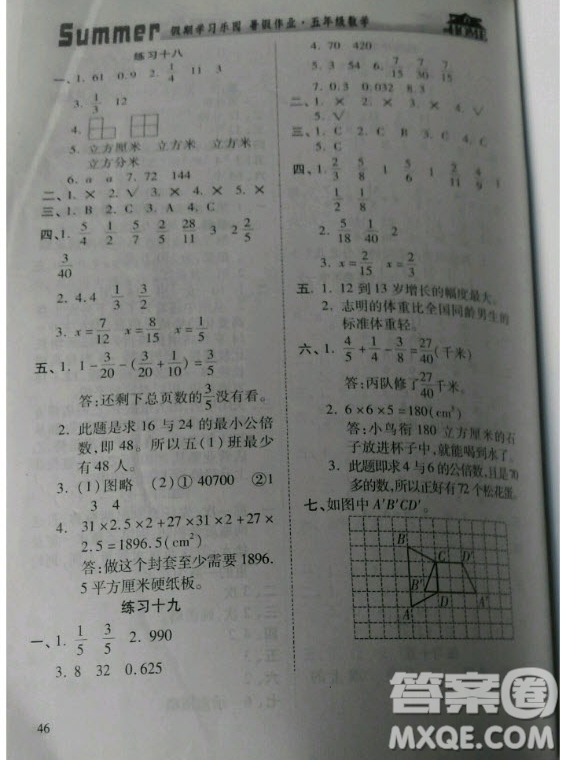 Summer 假期学习乐园 暑假作业·五年级数学
HOME
练习十八
一、1. 61 0.9 2. 1/4 11 3
3. 1/3 12
4.
5. 立方厘米 立方米 立方米
立方分米
6. a a 7. 72 144
二、1. × 2. × 3. × 4. × 5. ×
三、1. B 2. C 3. A 4. C
四、1. 5/4 1/2 2/5 28/11 3 2 2/5
3/40
2. 4.4 1/3 3/2
3. x=7/12 x=8/15 x=1/5
五、1. 1-3/20-(3/20+1/10)=3/5
答:还剩下总页数的3/5没有看。
2. 此题是求 16 与 24 的最小公倍
数,即 48。所以五(1)班最少
有 48 人。
3. (1)图略 (2)① 40700 ②1
3 4
4. 31×2.5×2+27×31×2+27×
2.5=1896.5(cm²)
答:做这个封套至少需要 1896.
5 平方厘米硬纸板。
练习十九
一、1. 1/5 3/5 2. 990
3. 8 32 0.625
46
4. 70 420
5. 3 54 6. 7/15 7/30 7/15
7. 0.3 0.032 8. 3/8
二、1. × 2. × 3. × 4. √
三、1. C 2. C 3. B 4. C
四、1. 2/3 1/5 1 1
1/2 1/8
2. 5/18 1/40 0
3. x=2/15 x=2/3
五、1. 12 到 13 岁增长的幅度最大。
2. 志明的体重比全国同龄男生的
标准体重轻。
六、1. 4/5+1/4-3/8=27/40(千米)
答:丙队修了27/40千米。
2. 6×6×5=180(cm³)
答:小鸟衔 180 立方厘米的石
子放进杯子中,就能喝到水了。
3. 此题即求 4 与 6 的公倍数,且是70
多的数,所以正好有 72 个松花蛋。
七、如图中 A'B'CD'。
B' C D' B D A'
答案圈
MXQE.COM